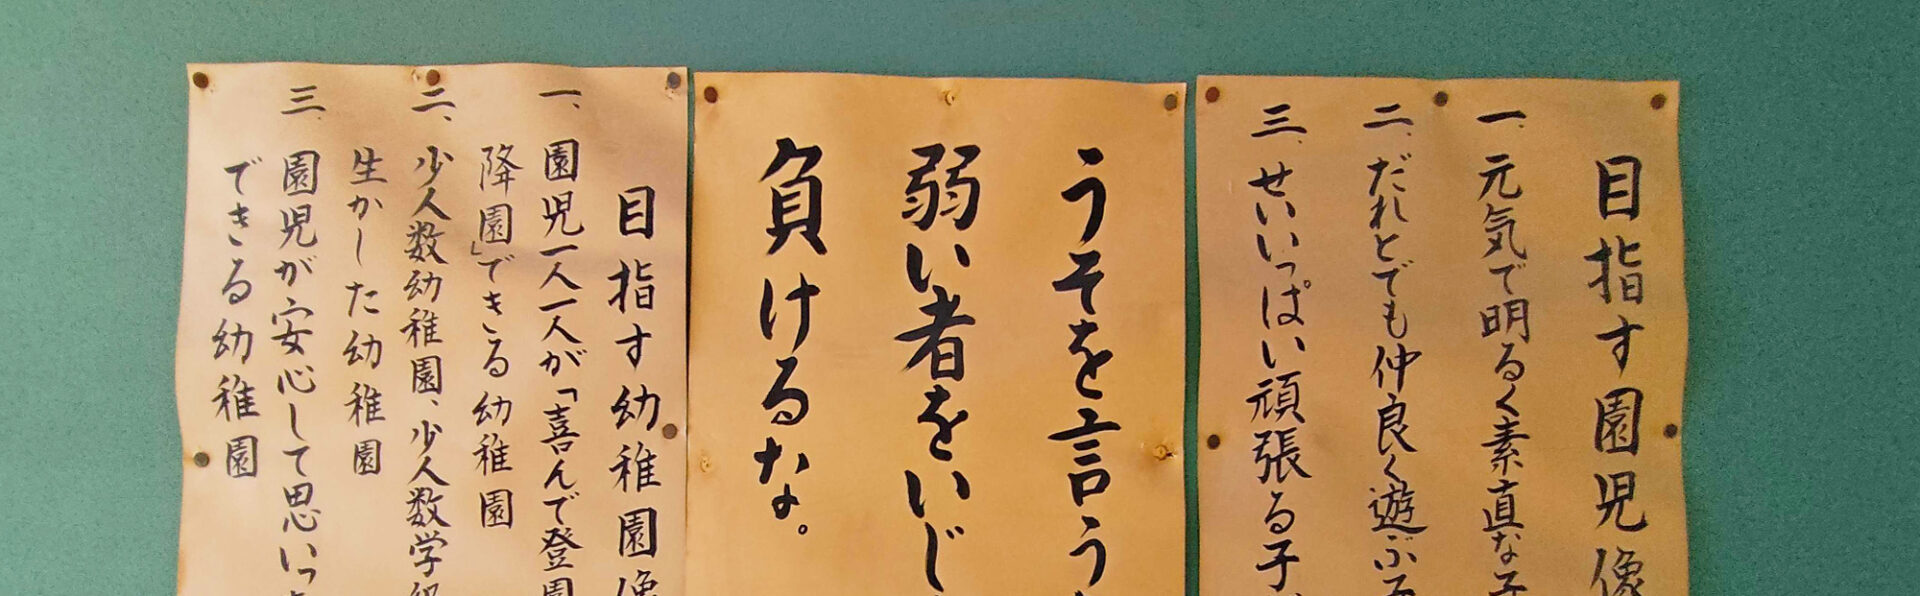 目指す園児像
一、元気で明るく素直な子
二、だれとでも仲良く遊ぶ子
三、せいいっぱい頑張る子
うそを言う
弱い者をいじ
負けるな。
目指す幼稚園像
一、園児一人一人が「喜んで登園
降園」できる幼稚園
二、少人数幼稚園、少人数学級
生かした幼稚園
三、園児が安心して思いっ
できる幼稚園